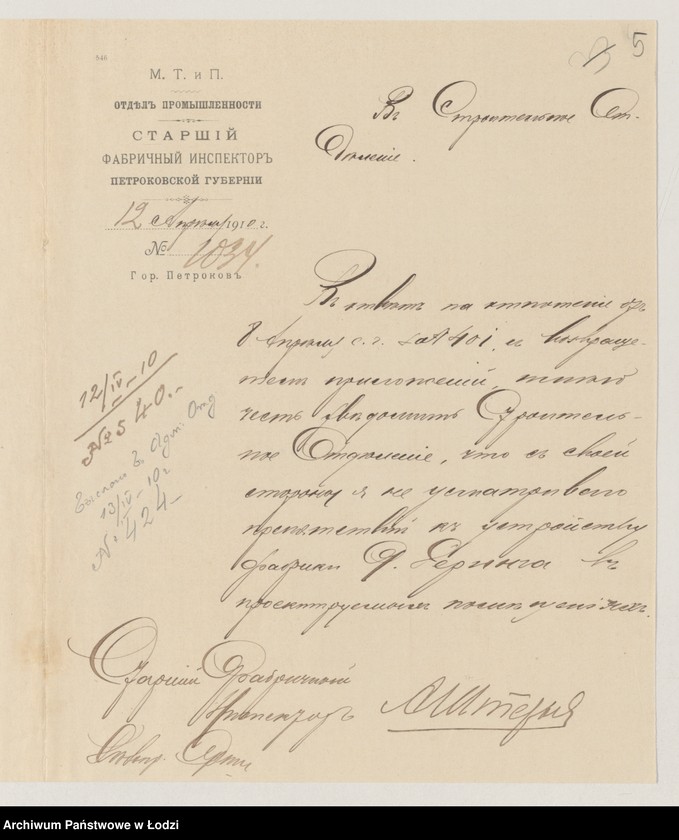 848
5
М. Т. и П.
ОТДѢЛЪ ПРОМЫШЛЕННОСТИ
СТАРШІЙ
ФАБРИЧНЫЙ ИНСПЕКТОРЪ
ПЕТРОКОВСКОЙ ГУБЕРНІИ
12 Апрѣля 1910 г.
№ 1034.
Гор. Петроковъ
Въ Строительное От-
дѣленіе.
Въ отвѣтъ на отношеніе отъ
8 Апрѣля с. г. за № 401, и возвраще-
приложеній, имѣю
честь увѣдомить Строитель-
ное Отдѣленіе, что съ своей
стороны я не усматриваю
препятствій къ устройству
фабрики Геринга въ
проектируемомъ помѣщеніи.
12/IV-10
№ 540.-
13/IV-10 г.
№ 424-
Старшій Фабричный
Инспекторъ